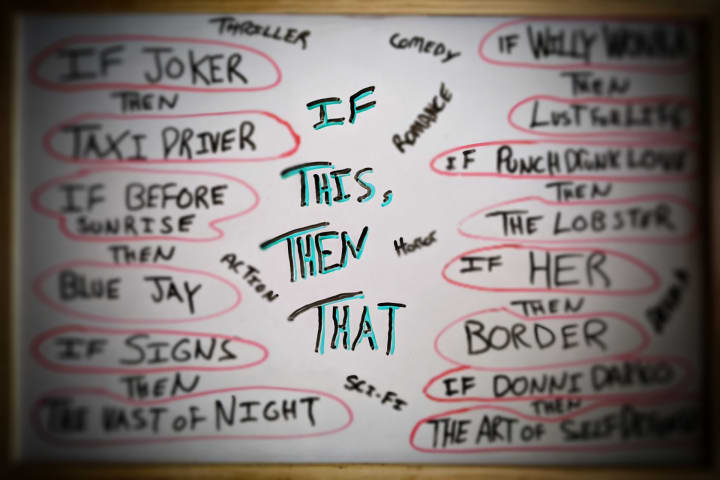 THRILLER
COMEDY
ROMANCE
HORROR
ACTION
SCI-FI
DRAMA
IF JOKER
THEN
TAXI DRIVER
IF BEFORE
SUNRISE
THEN
BLUE JAY
IF SIGNS
THEN
THE VAST OF NIGHT
IF
THIS,
THEN
THAT
IF WILLY WONKA
THEN
LUST FOR LIFE
IF PUNCH DRUNK LOVE
THEN
THE LOBSTER
IF HER
THEN
BORDER
IF DONNI DARKO
THEN
THE ART OF SELF DEFENSE